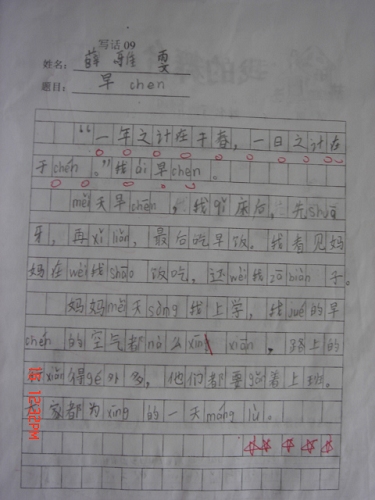 写话 09
姓名：薛雅雯
题目：早chen
“一年之计在于春，一日之计在
于chén。”我ài早chen。
měi天早chēn，我qǐ床后，先shuā
牙，再xǐ liǎn，最后吃早饭。我看见妈
妈在wèi我shāo饭吃，还wèi我zā biàn子。
妈妈měi天sòng我上学，我jué的早
chén的空气都nà么xīng xiān，路上的
xiǎn得gé外多，他们都要gǎn着上班。
家都为xīng的一天máng lù。
12:32PM